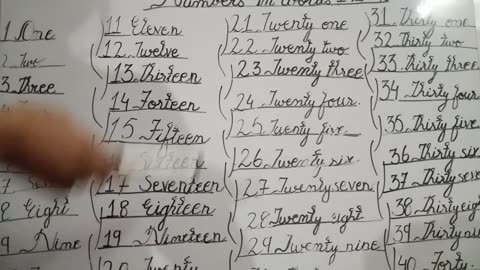 Numbers in words
1.One
2.Two
3.Three
8 Eight
9 Nine
11 Eleven
12.Twelve
13.Thirteen
14 Forteen
15 Fifteen
Sixteen
17 Seventeen
18 Eighteen
19 Nineteen
20 Twenty
21.Twenty one
22.Twenty two
23.Twenty three
24.Twenty four
25.Twenty five
26.Twenty six
27 Twenty seven
28 Twenty eight
29 Twenty nine
31.Thirty one
32.Thirty two
33.Thirty three
34 Thirty four
35.Thirty five
36 Thirty six
37 Thirty seven
38.Thirty eig
39.Thirty nin
40.Forty.